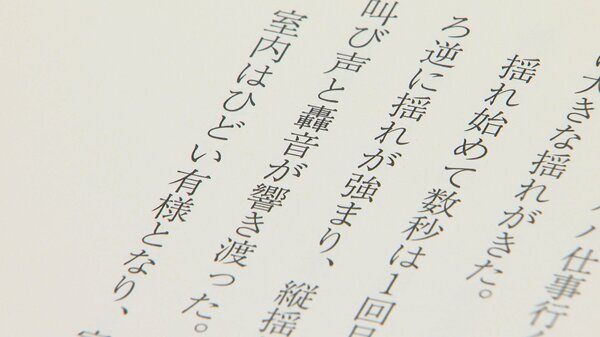 仕事行
大きな揺れがきた。
揺れ始めて数秒は1回
ろ逆に揺れが強まり、縦揺
叫び声と轟音が響き渡った。
室内はひどい有様となり、